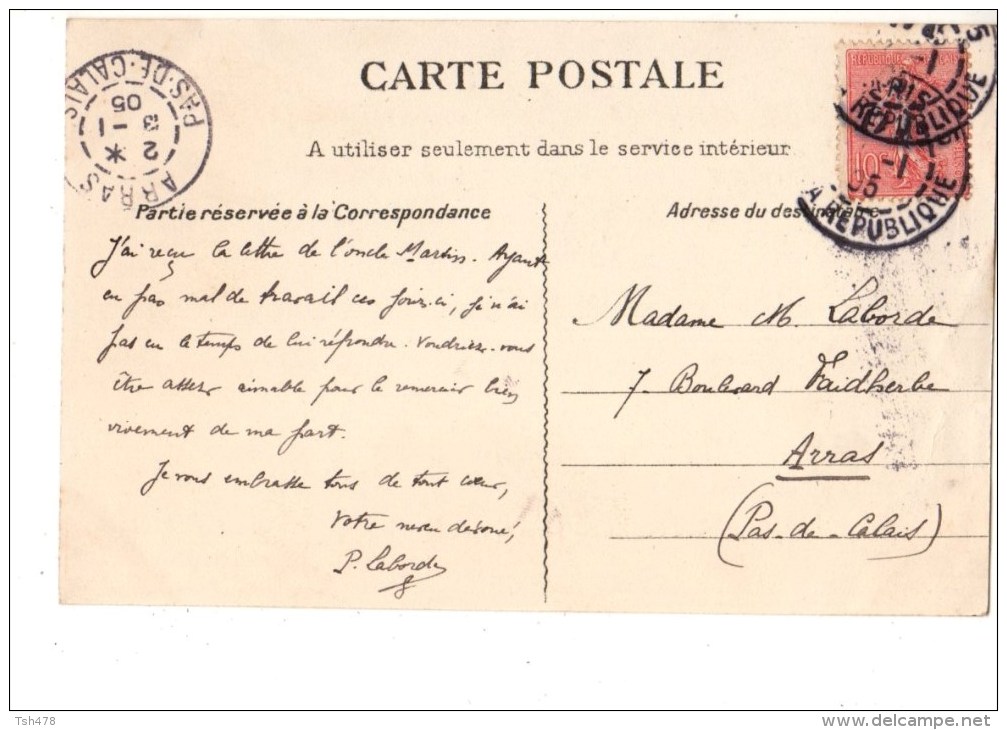 CARTE POSTALE
A utiliser seulement dans le service intérieur
Partie réservée à la Correspondance
J'ai reçu la lettre de l'oncle Martin. Ayant
eu pas mal de travail ces jours-ci, je n'ai
pas eu le temps de lui répondre. Voudriez-vous
être assez aimable pour le remercier bien
vivement de ma part.
Je vous embrasse tous de tout cœur,
Votre neveu dévoué,
P. Laborde
Adresse du destinataire
Madame M. Laborde
7. Boulevard Faidherbe
Arras
(Pas-de-Calais)
ARRAS
PAS-DE-CALAIS
2
3 -1
05
REPUBLIQUE
10c
A. REPUBLIQUE
-1
05
Tsh478
www.delcampe.net